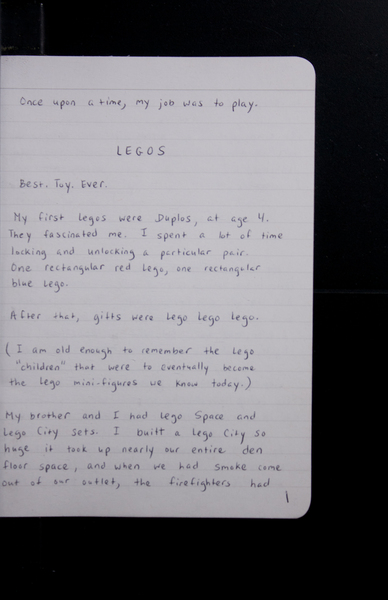 Once upon a time, my job was to play.
LEGOS
Best. Toy. Ever.
My first legos were Duplos, at age 4.
They fascinated me. I spent a lot of time
locking and unlocking a particular pair.
One rectangular red Lego, one rectangular
blue Lego.
After that, gifts were Lego Lego Lego.
(I am old enough to remember the Lego
"children" that were to eventually become
the Lego mini-figures we know today.)
My brother and I had Lego Space and
Lego City sets. I built a Lego City so
huge it took up nearly our entire den
floor space, and when we had smoke come
out of our outlet, the firefighters had
1